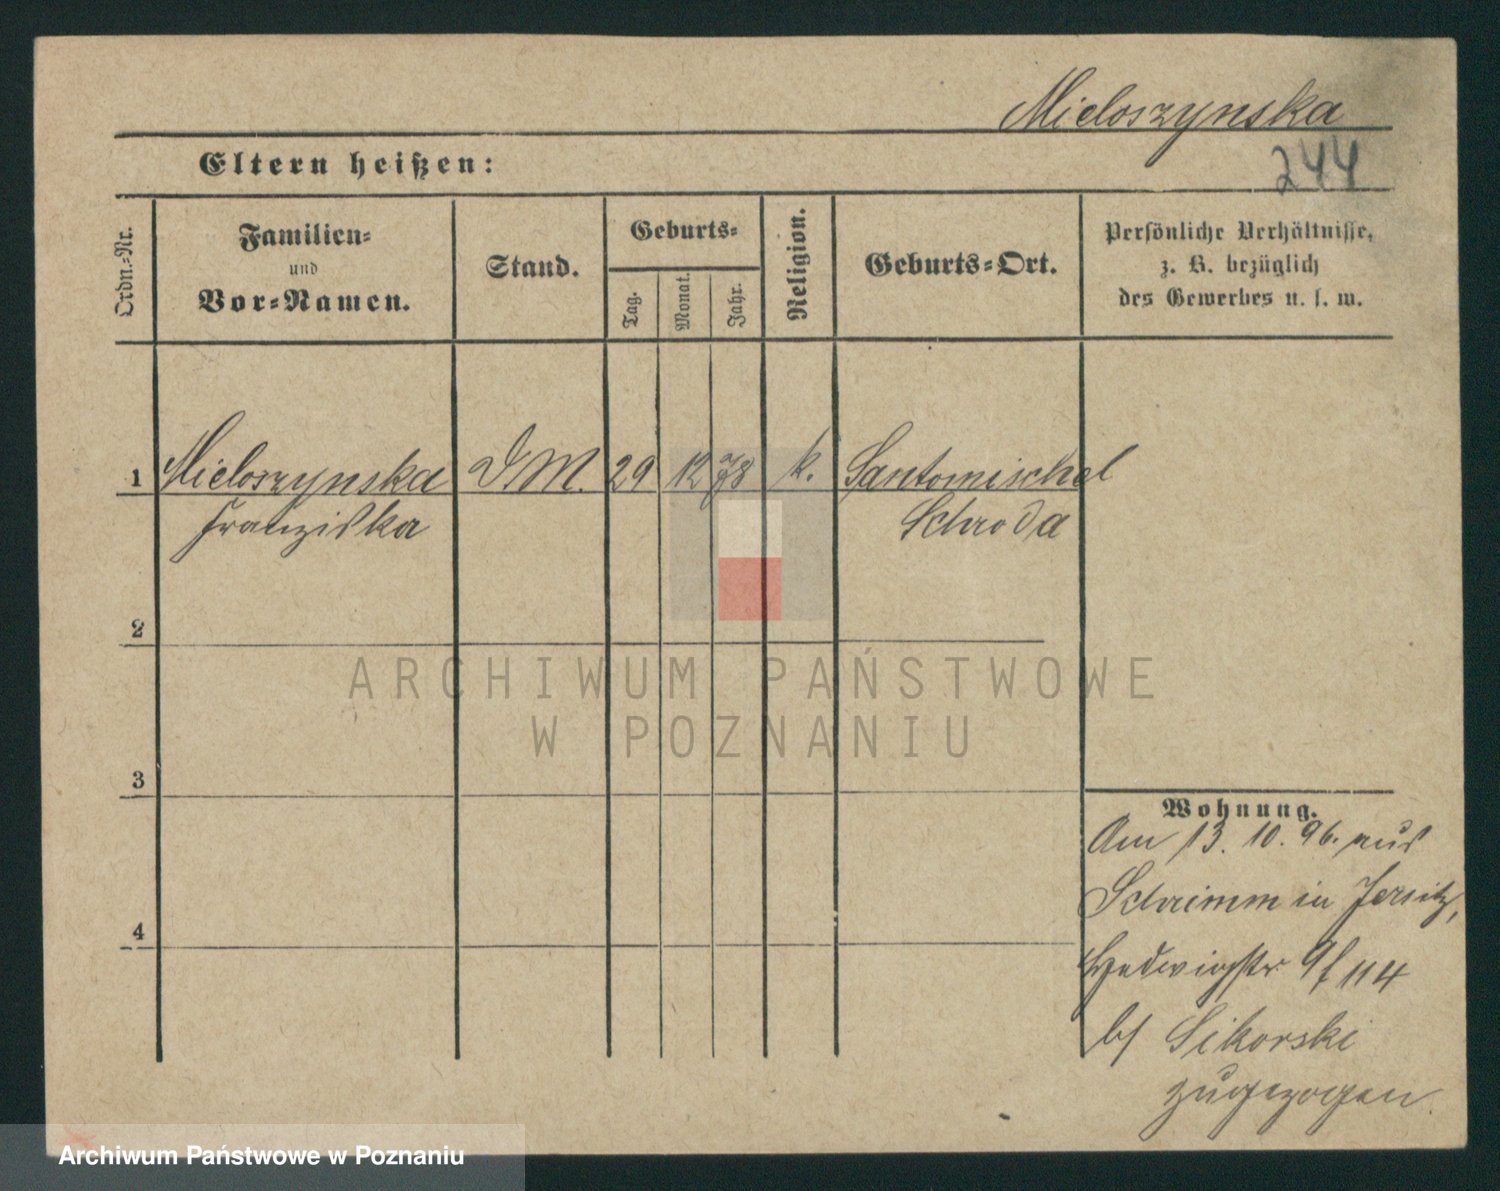 Mieloszynska
Eltern heißen:
244
Ordn.-Nr.
Familien-
und
Vor-Namen.
Stand.
Geburts-
Tag.
Monat.
Jahr.
Religion.
Geburts-Ort.
Persönliche Verhältnisse,
z. B. bezüglich
des Gewerbes u. s. w.
1 Mieloszynska DM. 29 12 78 k. Santomischel
Franziska Schroda
2
3
4
Wohnung.
Am 13. 10. 96. aus
Schrimm in Jersitz,
Hedwigstr 114
b/ Sikorski
zugezogen.
ARCHIWUM PAŃSTWOWE
W POZNANIU
Archiwum Państwowe w Poznaniu